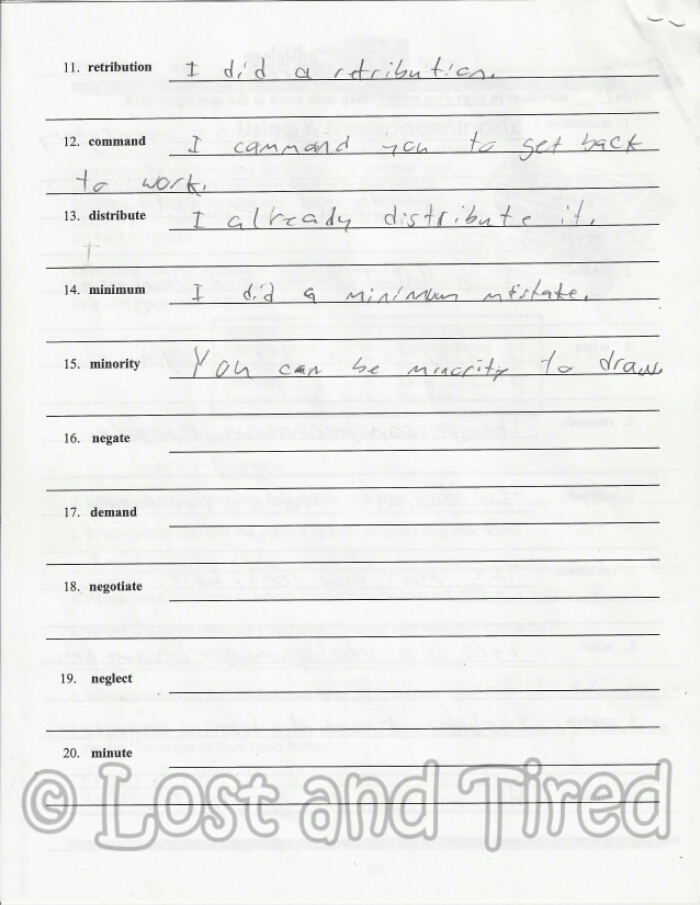 11. retribution I did a rtribution.
12. command I command you to get back
to work.
13. distribute I already distribute it.
14. minimum I did a minimum mistake.
15. minority You can be minority to draw.
16. negate
17. demand
18. negotiate
19. neglect
20. minute
© Lost and Tired